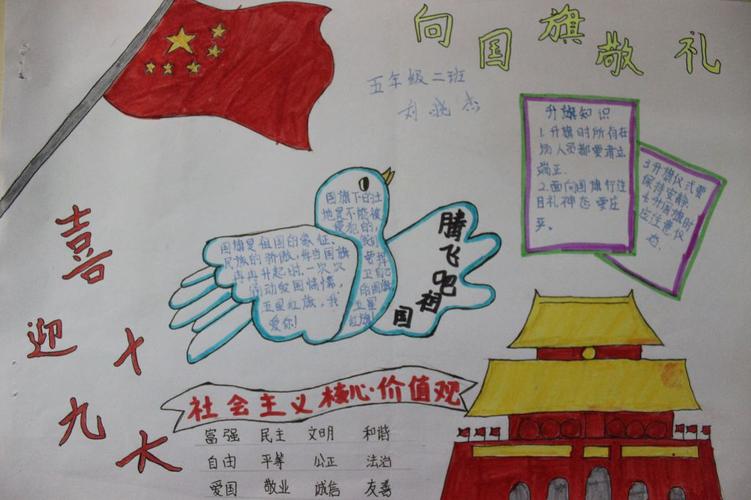 向国旗敬礼
五年级二班
刘晓杰
升旗知识
1.升旗时所有在
场人员都要肃立
端正.
2.面向国旗行注
目礼神态要庄
3升旗仪式要
保持安静
4.升国旗时
应注意仪
国旗下的土
地是不能被
侵犯的,
我
要捍
卫自己
的国旗
五星
红旗!
国旗是祖国的象征,
民族的骄傲,每当国旗
冉冉升起时,一次次
五星红旗,我
爱你!
腾飞吧祖国
喜迎十九大
社会主义核心·价值观
富强 民主 文明 和谐
自由 平等 公正 法治
爱国 敬业 诚信 友善